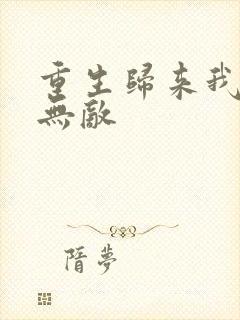 重生歸來我
無敵
隋夢